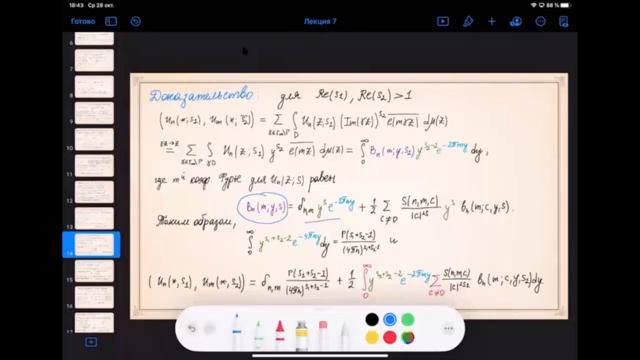 18:43 Ср 28 окт.
88 %
Готово
Лекция 7
Доказательство: для Re(s₁), Re(s₂) > 1
(Uₙ(*, s₁), Uₘ(*, s̄₂)) = Σ ∫_D Uₙ(z, s₁) (Im(γz))^{s₂} \overline{e(mγz)} dμ(z)
γz→z = Σ ∫_{γD} Uₙ(z, s₁) y^{s₂} \overline{e(mz)} dμ(z) = ∫₀^∞ Bₙ(m; y, s₁) y^{s₂-2} e^{-2πmy} dy,
где mй коэф. Фурье для Uₙ(z; s) равен
Bₙ(m; y, s) = δ_{n,m} y^s e^{-2πny} + 1/2 Σ_{c≠0} S(n,m,c)/|c|^{2s} y^s bₙ(m; c, y, s).
Таким образом,
∫₀^∞ y^{s₁+s₂-2} e^{-4πny} dy = Γ(s₁+s₂-1)/(4πn)^{s₁+s₂-1} и
(Uₙ(*, s₁), Uₘ(*, s̄₂)) = δ_{n,m} Γ(s₁+s₂-1)/(4πn)^{s₁+s₂-1} + 1/2 ∫₀^∞ y^{s₁+s₂-2} e^{-2πmy} Σ_{c≠0} S(n,m,c)/|c|^{2s₁} bₙ(m; c, y, s₁) dy.
6
14
15